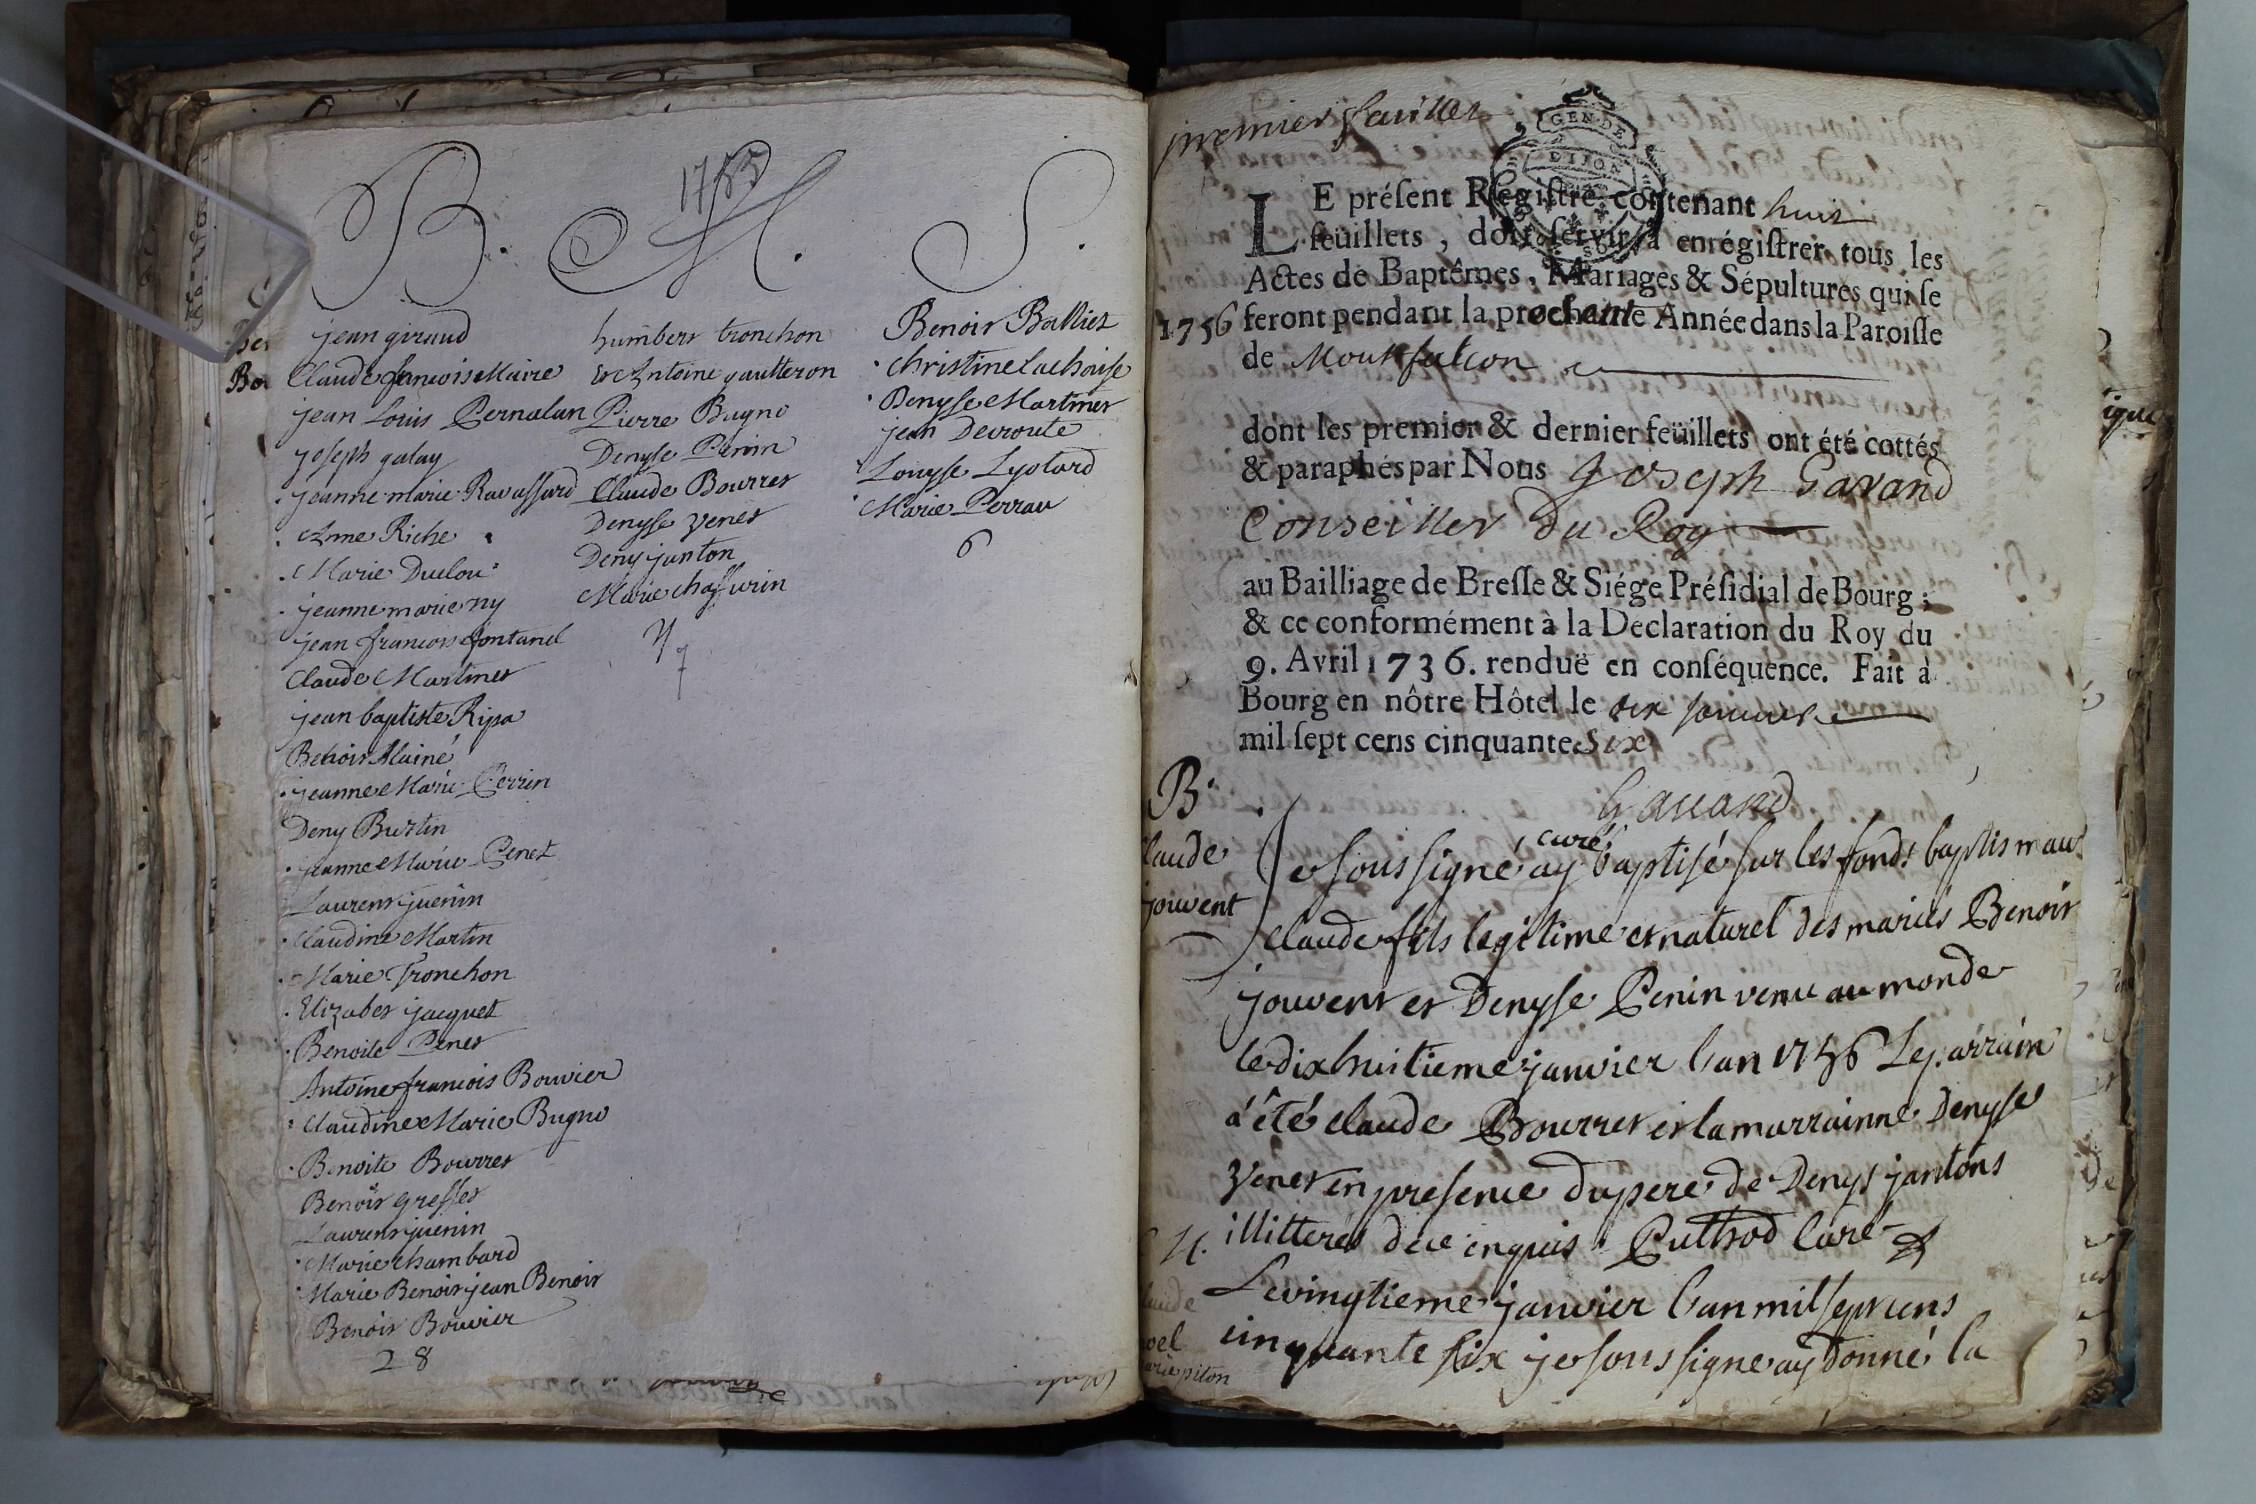 1755
B. M. S.
jean giraud
Claude francois Maire
jean Louis Pernalun
joseph galay
jeanne marie Ravassard
Anne Riche
Marie Duclou
jeanne marie ny
jean francois fontanel
Claude Martinet
jean baptiste Ripa
Benoit Alainé
jeanne Marie Perrin
Deny Burtin
jeanne Marie Penet
Laurent juenin
Claudine Martin
Marie Tronchon
Elizabet jacquet
Benoite Penet
Antoine francois Bouvier
Claudine Marie Bugno
Benoite Bourret
Benoit greffet
Laurent juenin
Marie chambard
Marie Benoit jean Benoit
Benoit Bouvier
28
humbert tronchon
et Antoine gautteron
Pierre Bugno
Denyse Penin
Claude Bourret
Denyse Venet
Deny janton
Marie chaffurin
7
Benoit Balliet
Christine Lachaise
Denyse Martinet
jean Devroute
Louyse Lyotard
Marie Perrau
6
premier feuillet
GEN. DE
DIJON
LE présent Régistre contenant huit
feüillets, doit servir à enrégistrer tous les
Actes de Baptêmes, Mariages & Sépultures qui se
1756 feront pendant la prochaine Année dans la Paroisse
de Montfalcon
dont les premier & dernier feüillets ont été cottés
& paraphés par Nous Joseph Gavand
Conseiller du Roy
au Bailliage de Bresse & Siége Présidial de Bourg;
& ce conformément à la Declaration du Roy du
9. Avril 1736. renduë en conséquence. Fait à
Bourg en nôtre Hôtel le dix janvier
mil sept cens cinquante six
Gavand
B.
Claude
jouvent
curé
Je soussigné ay baptisé sur les fonds baptismau
claude fils legitime et naturel des mariés Benoit
jouvent et Denyse Penin venu au monde
le dix huitieme janvier l'an 1756 Le parrain
a été claude Bourret et la marrainne Denyse
Venet en presence du pere de Denys jantons
illitterés de ce enquis Puthod Curé
M.
Claude
noel
marie piton
Le vingtieme janvier l'an mil sept cens
cinquante six je soussigné ay donné la